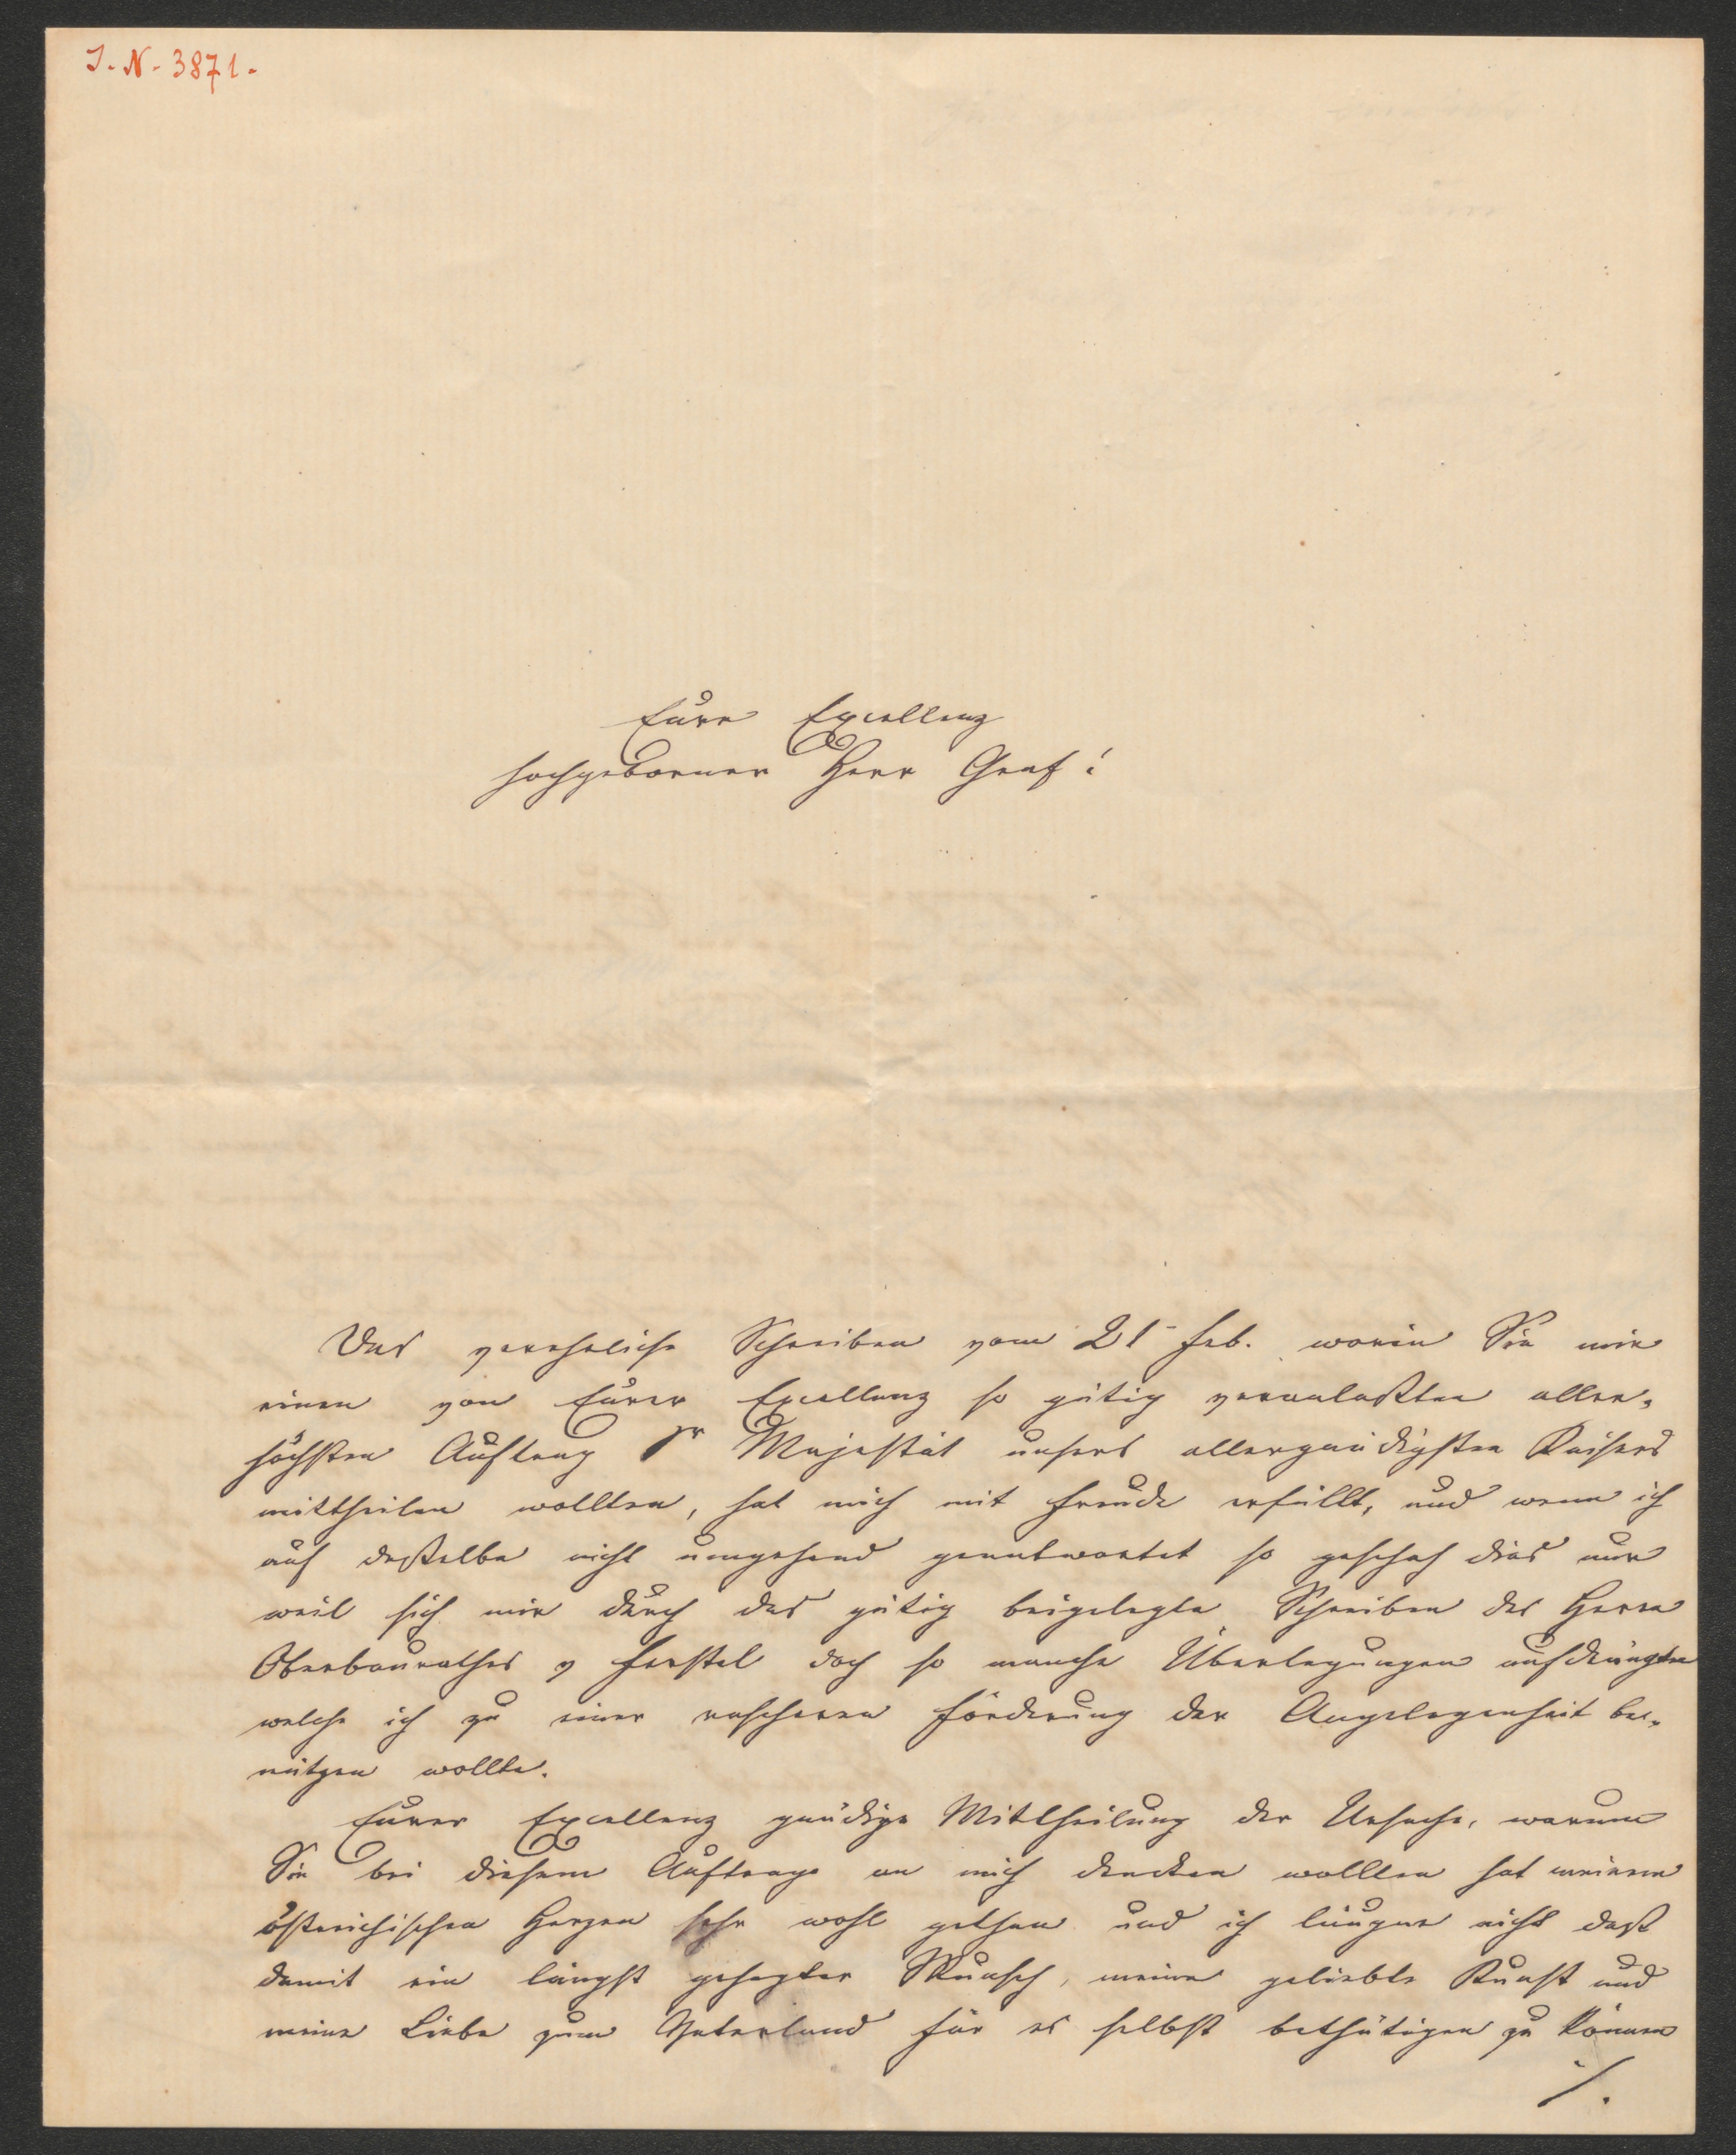 I. N. 3871.
Eure Excellenz
hochgeborner Herr Graf!
Das verehrliche Schreiben vom 21 Feb. worin Sie mir
einen von Eurer Excellenz so gütig veranlaßten aller-
höchsten Auftrag Sr Majestät unsers allergnädigsten Kaisers
mittheilen wollten, hat mich mit Freude erfüllt, und wenn ich
auf daßelbe nicht umgehend geantwortet so geschah dies nur
weil sich mir durch das gütig beigelegte Schreiben des Herrn
Oberbaurathes v Ferstel doch so manche Überlegungen aufdrängten
welche ich zu einer rascheren Förderung der Angelegenheit be-
nützen wollte.
Eurer Excellenz gnädige Mittheilung der Ursache, warum
Sie bei diesem Auftrage an mich dencken wollten hat meinem
östreichischen Herzen sehr wohl gethan und ich läugne nicht daß
damit ein längst gehegter Wunsch, meine geliebte Kunst und
meine Liebe zum Vaterland für es selbst bethätigen zu können
./.